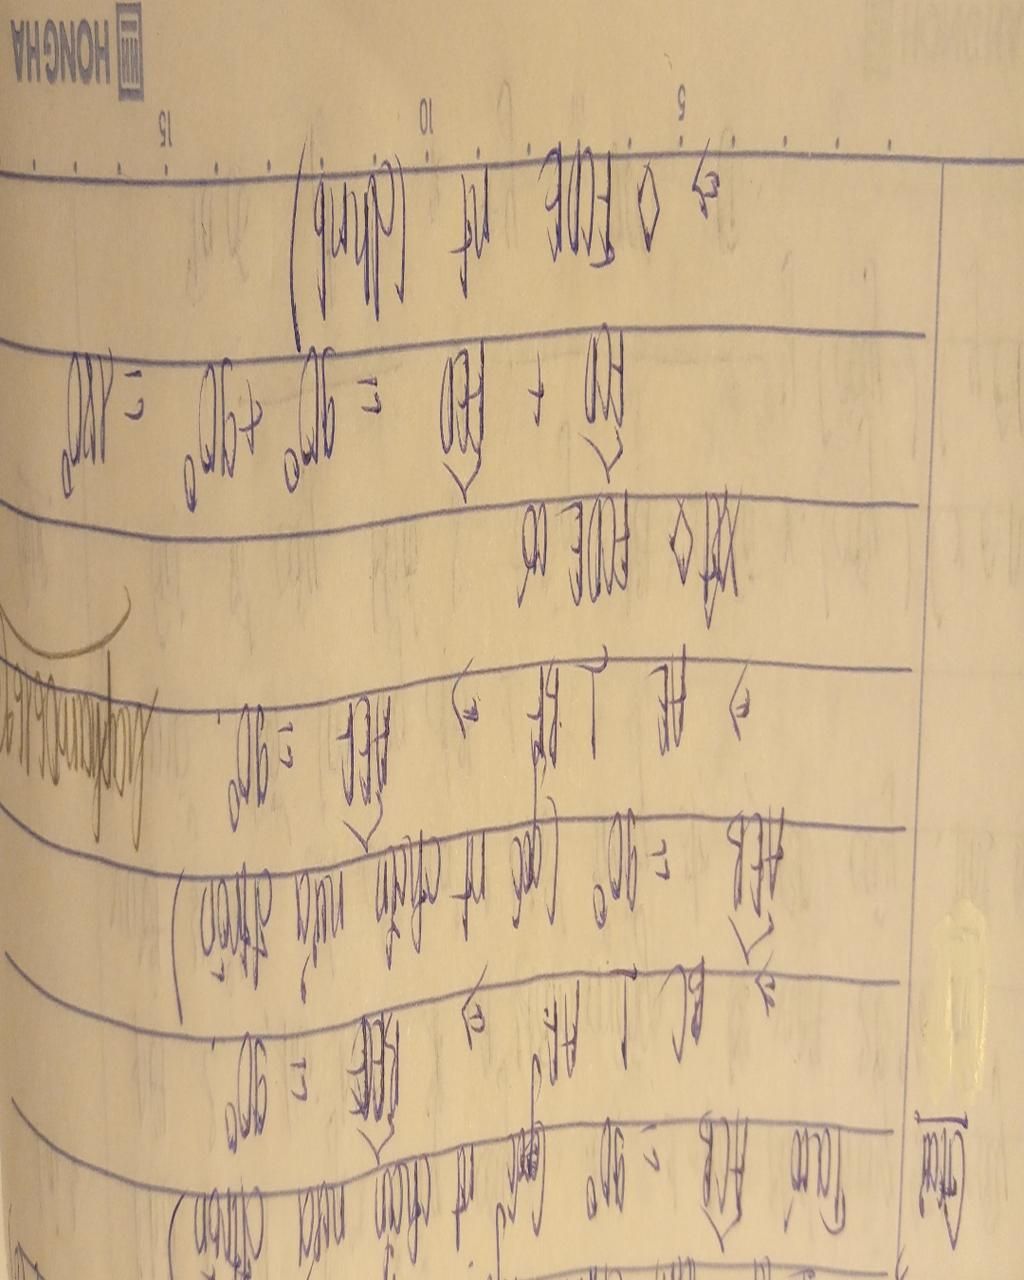 Giải
Ta có ACB = 90° (góc nt chắn nửa đtròn)
=> BC ⊥ AF => BCF = 90°
AEB = 90° (góc nt chắn nửa đtròn)
=> AE ⊥ BF => AEF = 90°
Xét ◇ FCDE có
FCD + FED = 90° + 90° = 180°
=> ◇ FCDE nt (đpcm)
5 10 15
HONG HA